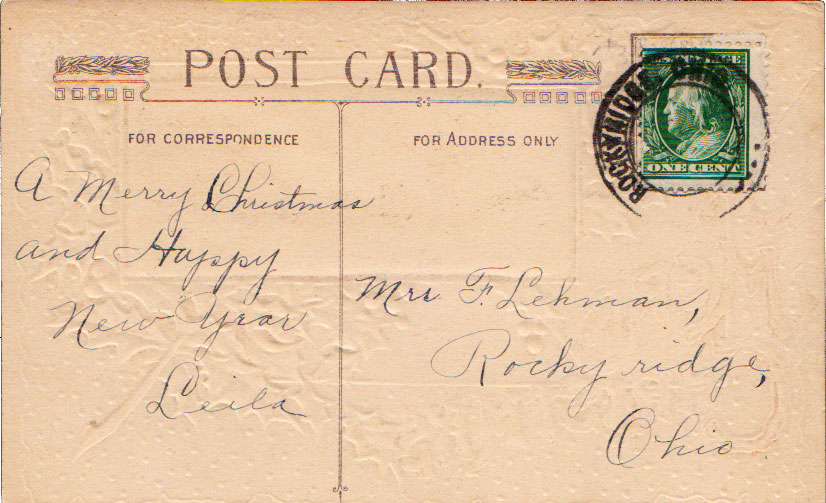 POST CARD.
FOR CORRESPONDENCE
FOR ADDRESS ONLY
ROCKYRIDGE OHIO
ONE CENT
A Merry Christmas
and Happy
New Year
Leila
Mrs. F. Lehman,
Rocky ridge,
Ohio